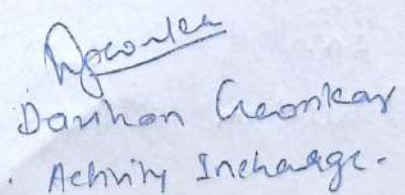 Darshan Gaonkar
Activity Incharge.